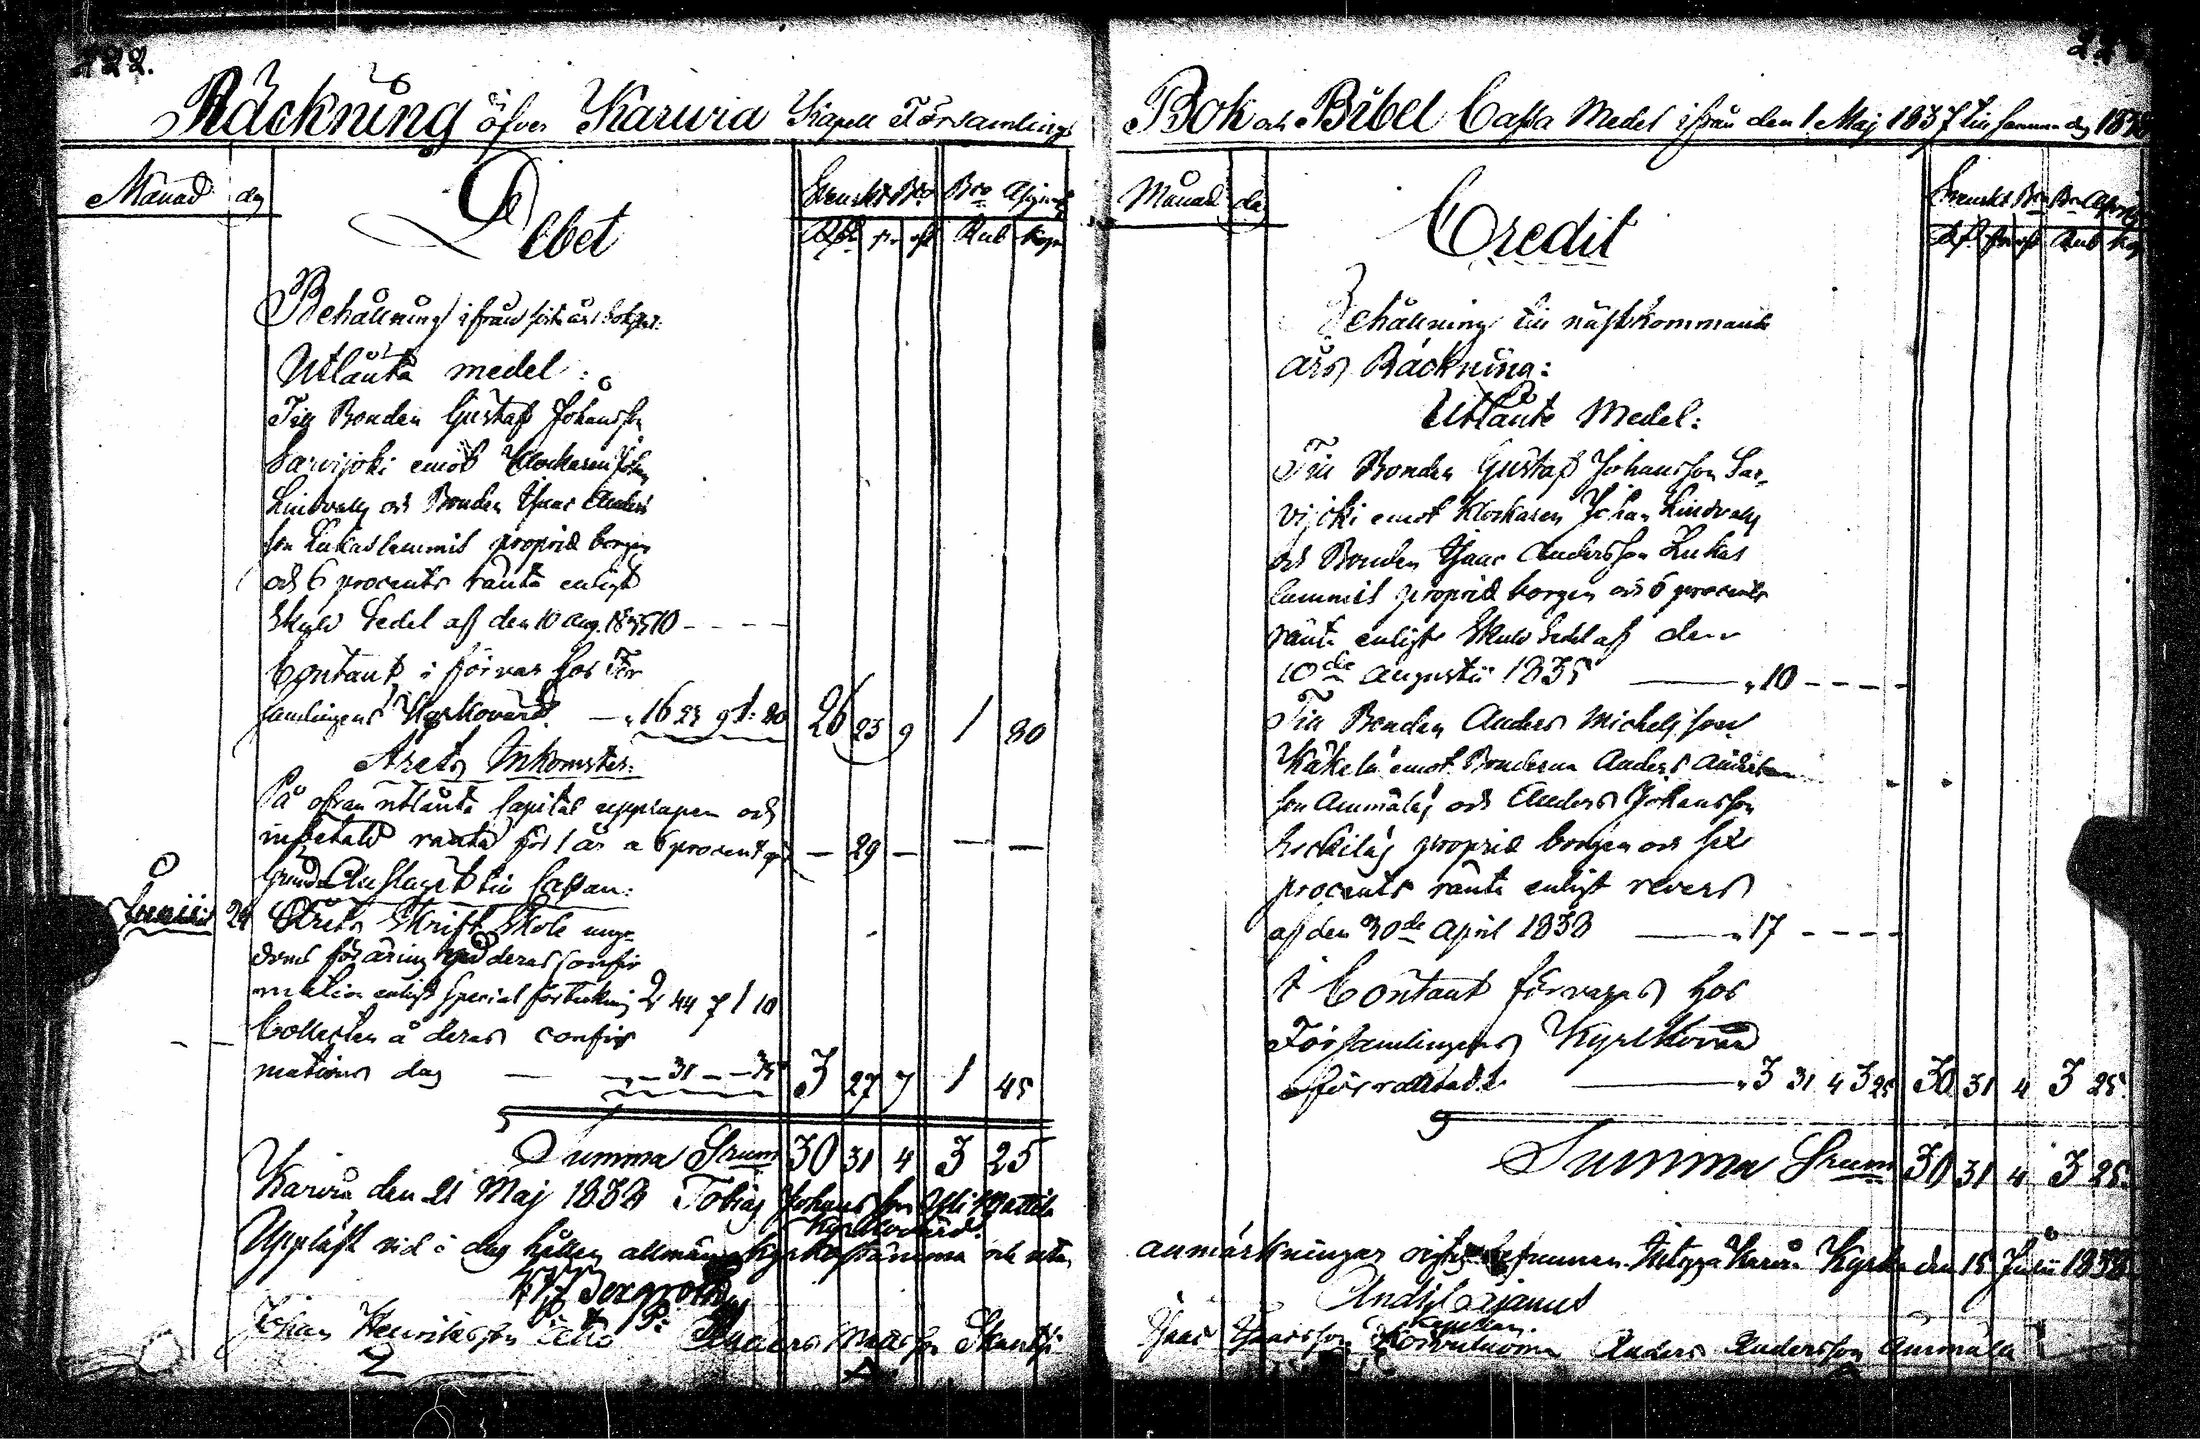 222.
Räckning öfver Karvia Kapell Församlings
Månad dag Debet Svenskt Bco Bco Assign
Rdr sk rst Rub kop
Behållning ifrån sista års
Utlånta medel:
Till Bonden Gustaf Johansson
Sarvijoki emot Klockaren Johan
Lindvall och Bonden Isaac Anders
son Lukaslammis proprie borgen
och 6 procents ränta enligt
Skuld Sedel af den 10 Aug. 1835 10 - - - -
Contant i förvar hos För
samlingens Kyrkovärd. — „ 16 23 9 1: 80 26 23 9 1 80
Årets Inkomster:
På ofvan utlånta Capital upptagen och
inbetald ränta för 1 år a 6 procent — 29 — — —
Anslaget till Cassan:
Junii 24 Årets Skrift Skole ung-
doms föräring vid deras confir
mation enligt special förtekning 2 44 7 1 10
Collecten å deras confir
mations dag — „ — 31 — — 35 3 27 7 1 45
Summa Srum 30 31 4 3 25
Karvia den 21 Maj 1838 Tobias Johansson Yli Mattila
Kyrkovärd.
Uppläst vid i dag hållen allmän Kyrkostämma och utan
Bergroth
Johan Henriksson Anders Mattsson Skantsi
Bok och Bibel Cassa Medel ifrån den 1 Maj 1837 till samma dag 1838
Månad dag Credit Svenskt Bco Bco Assign
Rdr sk rst Rub kop
Behållning till nästkommande
års Räckning:
Utlånte Medel:
Till Bonden Gustaf Johansson Sar-
vijoki emot Klockaren Johan Lindvall
och Bonden Isaac Andersson Lukas
lammis proprie borgen och 6 procents
ränta enligt Skuld Sedel af den
10de Augustii 1835 — „ 10 - - - -
Till Bonden Anders Michelsson
Käkelä emot Bönderne Anders Anders
son Ammälä och Anders Johansson
proprie borgen och sex
procents ränta enligt revers
af den 30de April 1838 — „ 17 - - - -
i Contant förvaras hos
Församlingens Kyrkovärd
— „ 3 31 4 3 25 30 31 4 3 25
Summa Srum 30 31 4 3 25
anmärkningar befunnen. Kyrka den 15 Julii 1838
Capellan.
Isaac Isaacsson Anders Andersson Ammälä